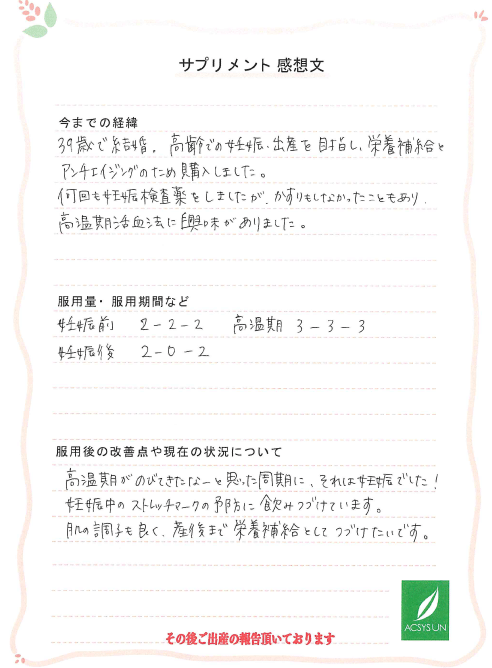 サプリメント 感想文
今までの経緯
39歳で結婚。高齢での妊娠、出産を目指し、栄養補給と
アンチエイジングのため購入しました。
何回も妊娠検査薬をしましたが、かすりもしなかったこともあり、
高温期活血法に興味がありました。
服用量・服用期間など
妊娠前 2-2-2 高温期 3-3-3
妊娠後 2-0-2
服用後の改善点や現在の状況について
高温期がのびてきたなーと思った周期に、それは妊娠でした！
妊娠中のストレッチマークの予防に飲みつづけています。
肌の調子も良く、産後まで栄養補給としてつづけたいです。
ACSYSUN
その後ご出産の報告頂いております